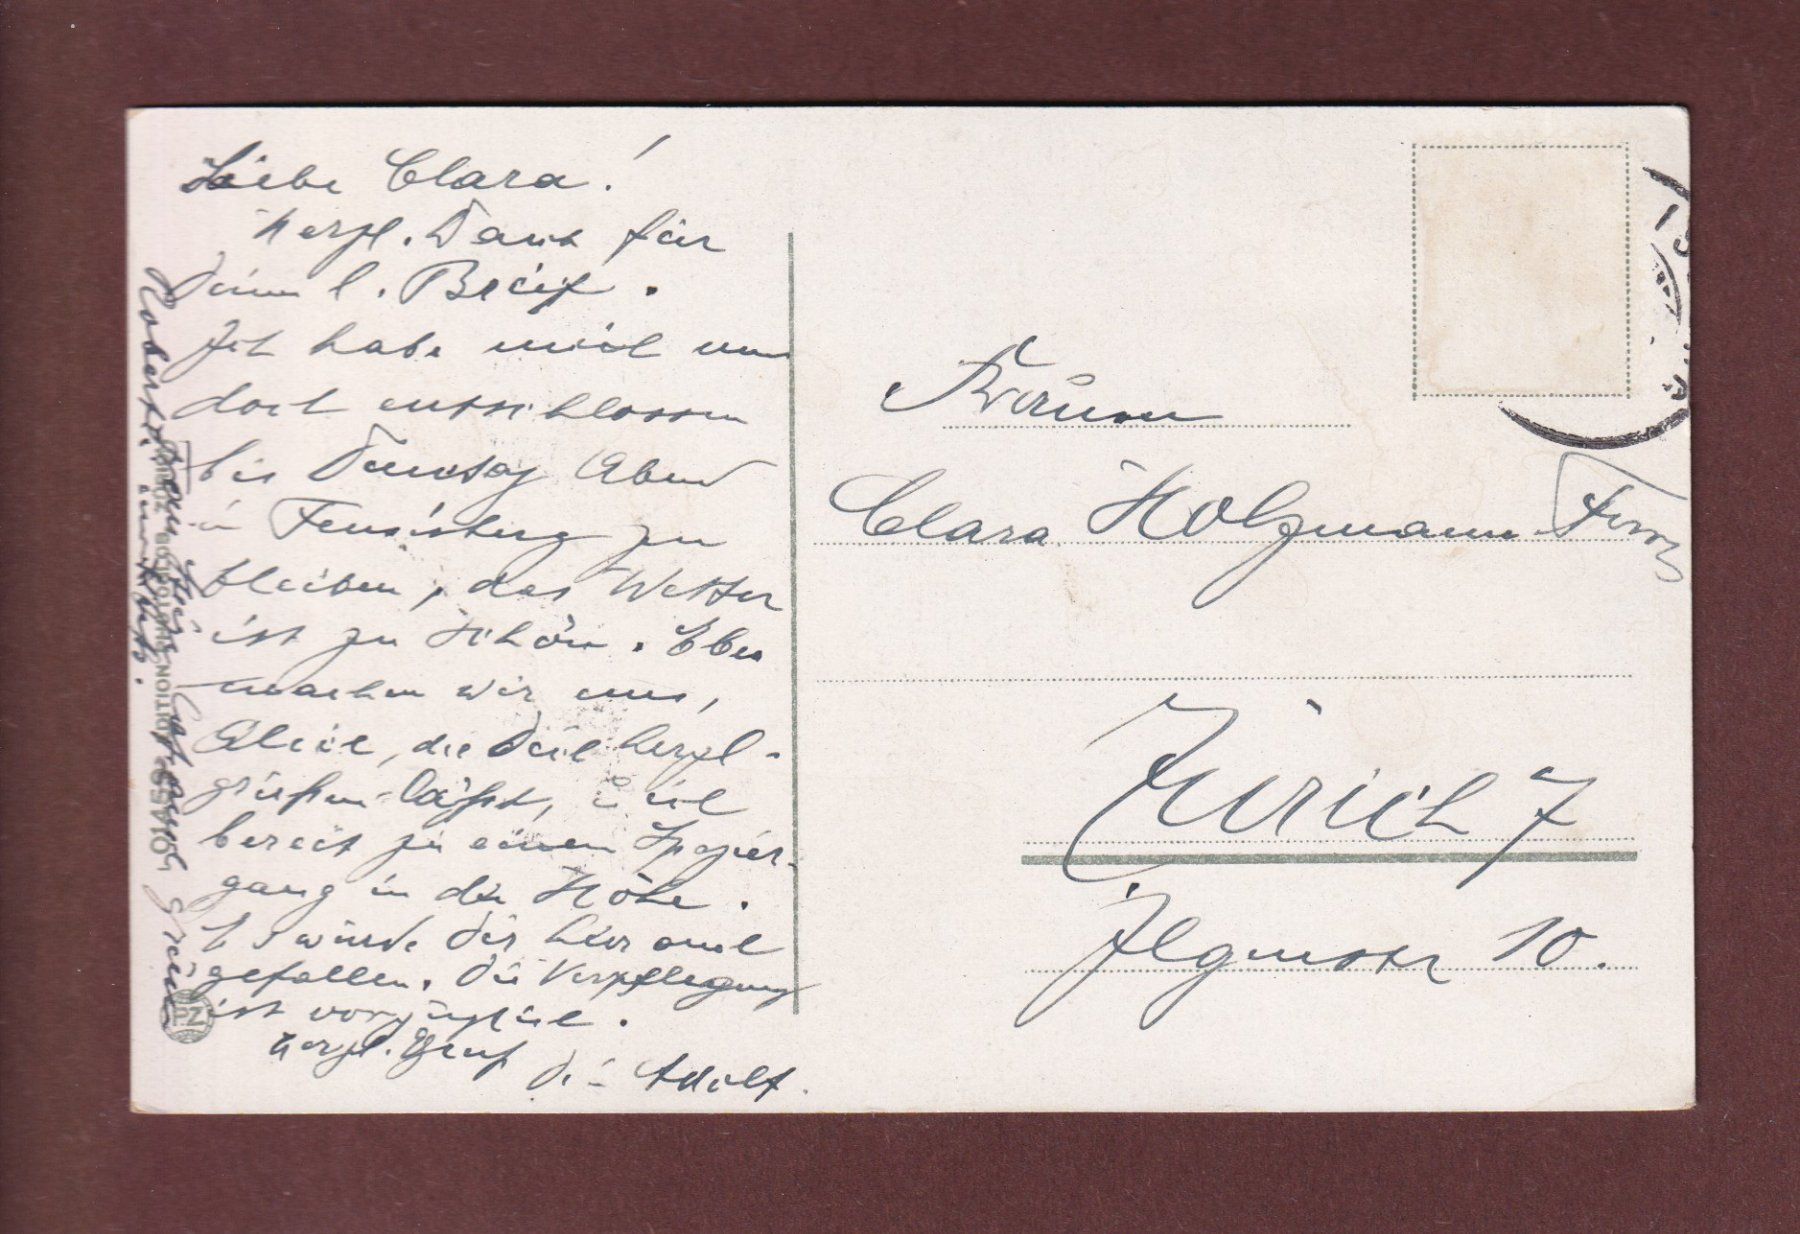 Liebe Clara!
Herzl. Dank für
Deinen l. Brief.
Ich habe mich nun
doch entschlossen
bis Dienstag Abend
in Feusisberg zu
bleiben, das Wetter
ist zu schön. Eben
machen wir uns,
Alice, die Dich herzl.
grüßen läßt, & ich
bereit zu einem Spazier-
gang in die Höhe.
Es würde Dir hier auch
gefallen. Die Verpflegung
ist vorzüglich.
Herzl. Gruß
Dein Adolf.
Robert
auch
Fräulein
Clara Holzmann
Zürich 7
Ilgenstr 10.
PZ